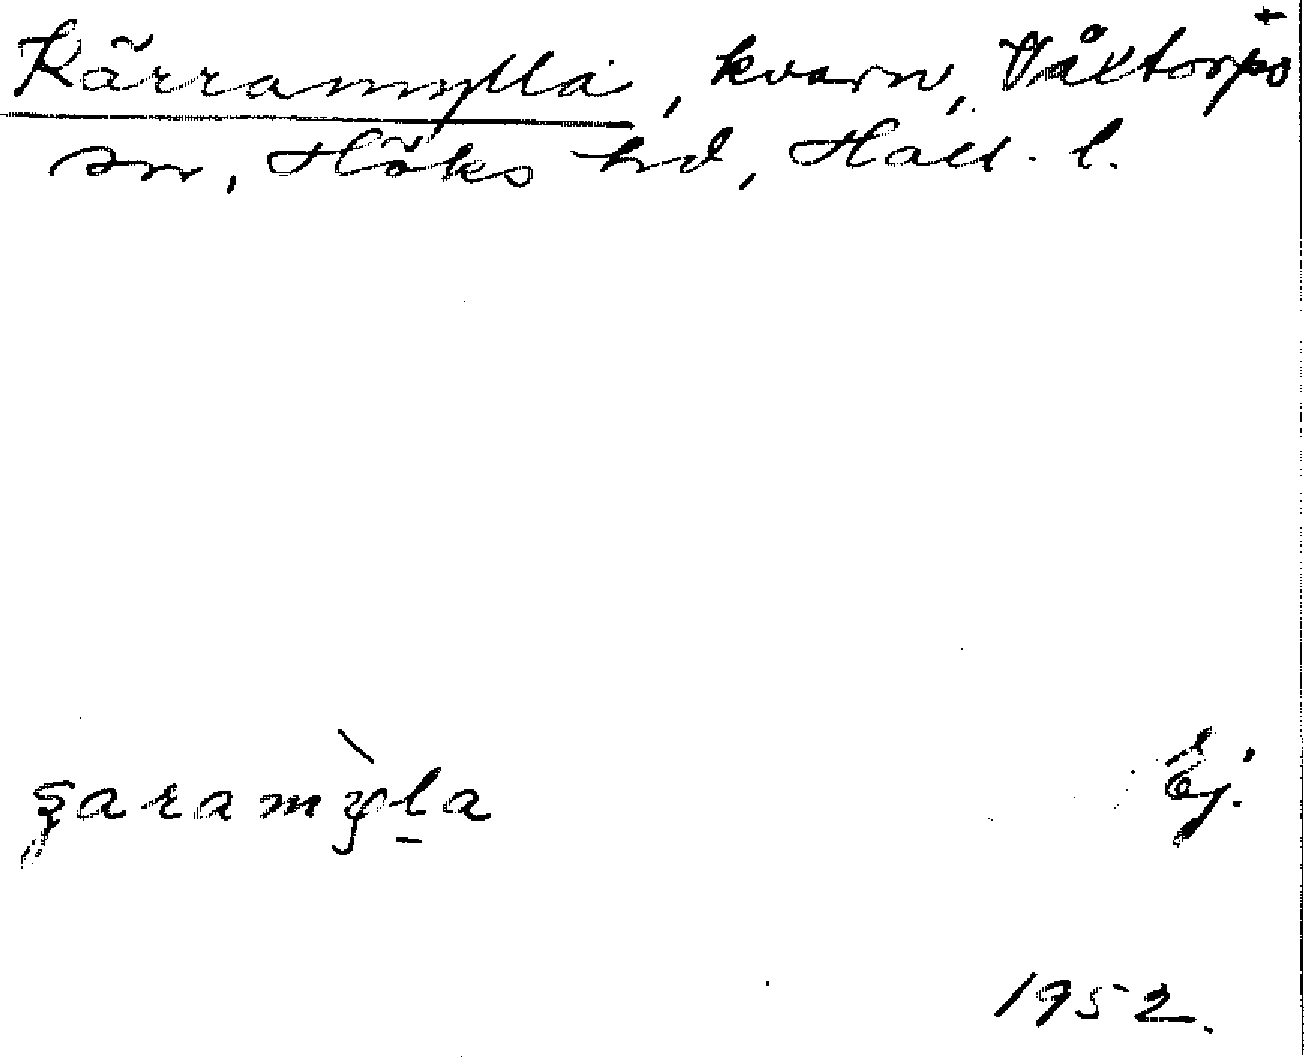 Kärramylla, kvarn, Våxtorps
sn, Höks hd, Hall. l.
şaramỳl̠a
Ej.
1952.